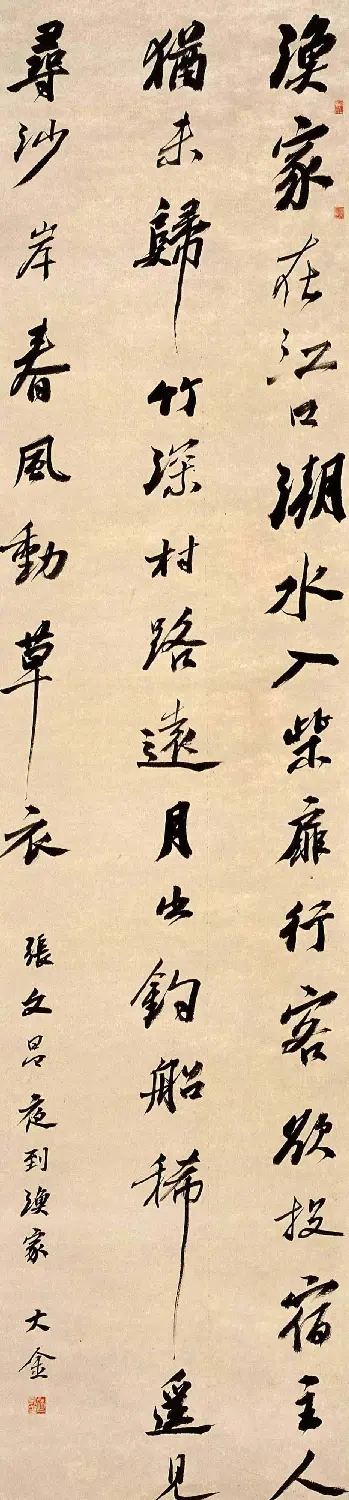 渔家在江口潮水入柴扉行客欲投宿主人
猶未歸竹深村路遠月出釣船稀遥見
尋沙岸春風動草衣
張文昌夜到渔家 大金